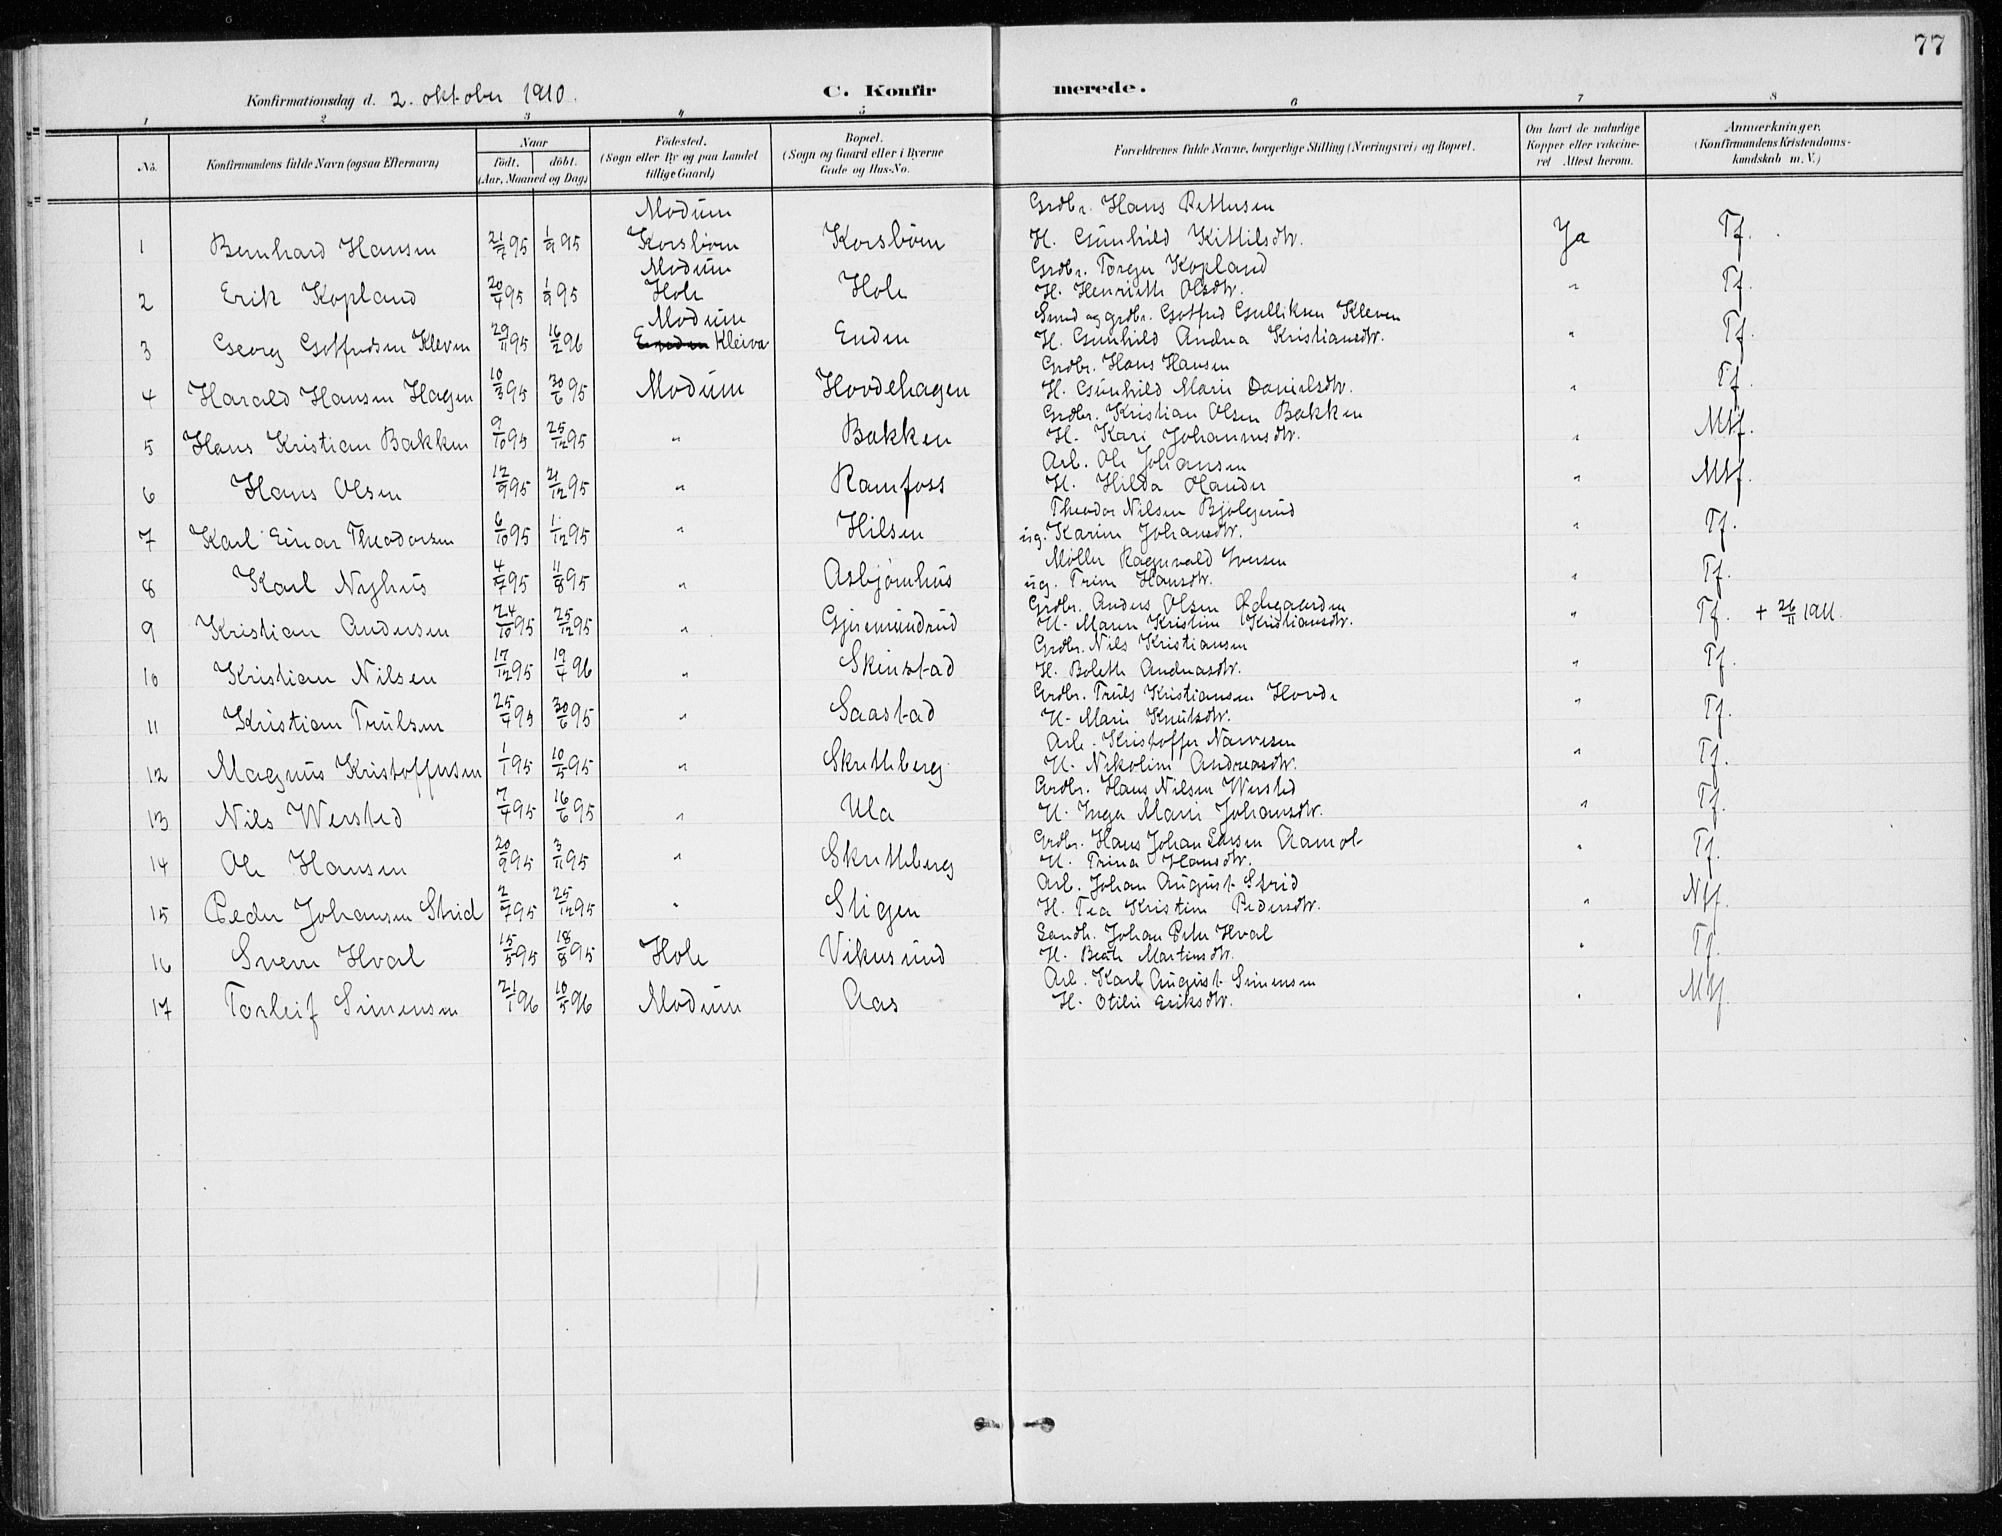 77
Konfirmationsdag d. 2. oktober 1910.
C. Konfirmerede.
1 2 3 4 5 6 7 8
No. Konfirmandens fulde Navn (ogsaa Efternavn) Naar födt. döbt. (Aar, Maaned og Dag) Födested. (Sogn eller By og paa Landet tillige Gaard) Bopæl. (Sogn og Gaard eller i Byerne Gade og Hus-No. Forældrenes fulde Navne, borgerlige Stilling (Næringsvei) og Bopæl. Om havt de naturlige Kopper eller vakcineret Attest herom. Anmærkninger. (Konfirmandens Kristendomskundskab m. V.)
Modum Grdbr. Hans Pettersen
1 Bernhard Hansen 21/7 95 1/9 95 Korsbøen Korsbøen H. Gunhild Kittilsdtr. Ja Tf.
Modum Grdbr. Torger Kopland
2 Erik Kopland 20/4 95 1/9 95 Hole Hole H. Henriette Olsdtr. " Tf.
Modum Smed og grdbr. Gotfred Gulliksen Kleven
3 Georg Gotfredsen Kleven 29/11 95 16/2 96 Kleiva Enden H. Gunhild Andrea Kristiansdtr. " Tf.
Grdbr. Hans Hansen
4 Harald Hansen Hagen 10/3 95 30/6 95 Modum Hovdehagen H. Gunhild Marie Danielsdtr. " Tf.
Grdbr. Kristian Olsen Bakken
5 Hans Kristian Bakken 9/10 95 25/12 95 " Bakken H. Kari Johannesdtr. " Mtf.
Arb. Ole Johansen
6 Hans Olsen 12/9 95 /12 95 " Ramfoss H. Hilda Olander " Mtf.
Theodor Nilsen Bjølgerud
7 Karl Einar Theodorsen 6/10 95 1/12 95 " Hilsen ug. Karen Johansdtr. " Tf.
Møller Ragnvald Iversen
8 Karl Nyhus 4/7 95 11/8 95 " Asbjørnhus ug. Trine Hansdtr. " Tf.
Grdbr. Anders Olsen Ødegaarden
9 Kristian Andersen 24/10 95 25/12 95 " Gjeremundrud H. Maren Kristine Kristiansdtr. " Tf. + 26/11 1911.
Grdbr. Nils Kristiansen
10 Kristian Nilsen 17/12 95 19/4 96 " Skinstad H. Bolette Andreasdtr. " Tf.
Grdbr. Truls Kristiansen Hovde
11 Kristian Trulsen 25/4 95 30/6 95 " Saastad H. Marie Knutsdtr. " Tf.
Arb. Kristoffer Narvesen
12 Magnus Kristoffersen 1/1 95 10/5 95 " Skretteberg H. Nikoline Andreasdtr. " Tf.
Grdbr. Hans Nilsen Wersted
13 Nils Wersted 7/4 95 16/6 95 " Ula H. Inga Marie Johansdtr. " Tf.
Grdbr. Hans Johan Larsen Aamot
14 Ole Hansen 20/9 95 3/11 95 " Skretteberg H. Trina Hansdtr. " Tf.
Arb. Johan August Strid
15 Peder Johansen Strid 2/7 95 25/12 95 " Stigen H. Tea Kristine Pedersdtr. " Ntf.
Landh. Johan Peter Hval
16 Sverre Hval 15/5 95 18/8 95 Hole Vikesund H. Beate Martinsdtr. " Tf.
Arb. Karl August Simensen
17 Torleif Simensen 21/1 96 10/5 96 Modum Aas H. Otilie Eriksdtr. " Mtf.